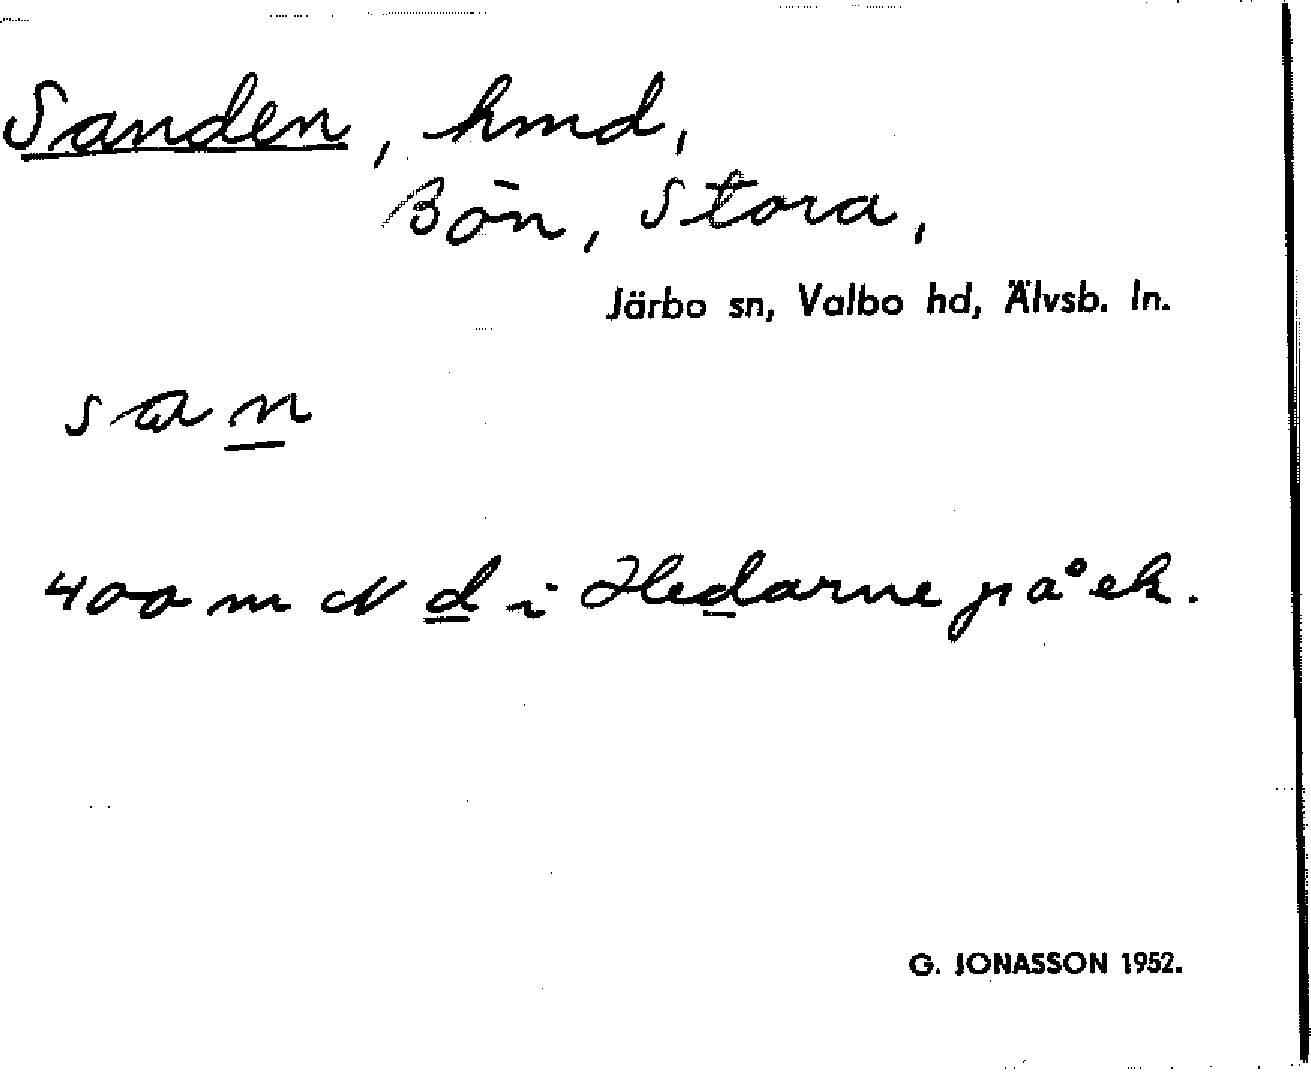 Sanden, hmd,
Bön, Stora,
Järbo sn, Valbo hd, Älvsb. ln.
san
400 m N d i Hedarne på ek.
G. JONASSON 1952.